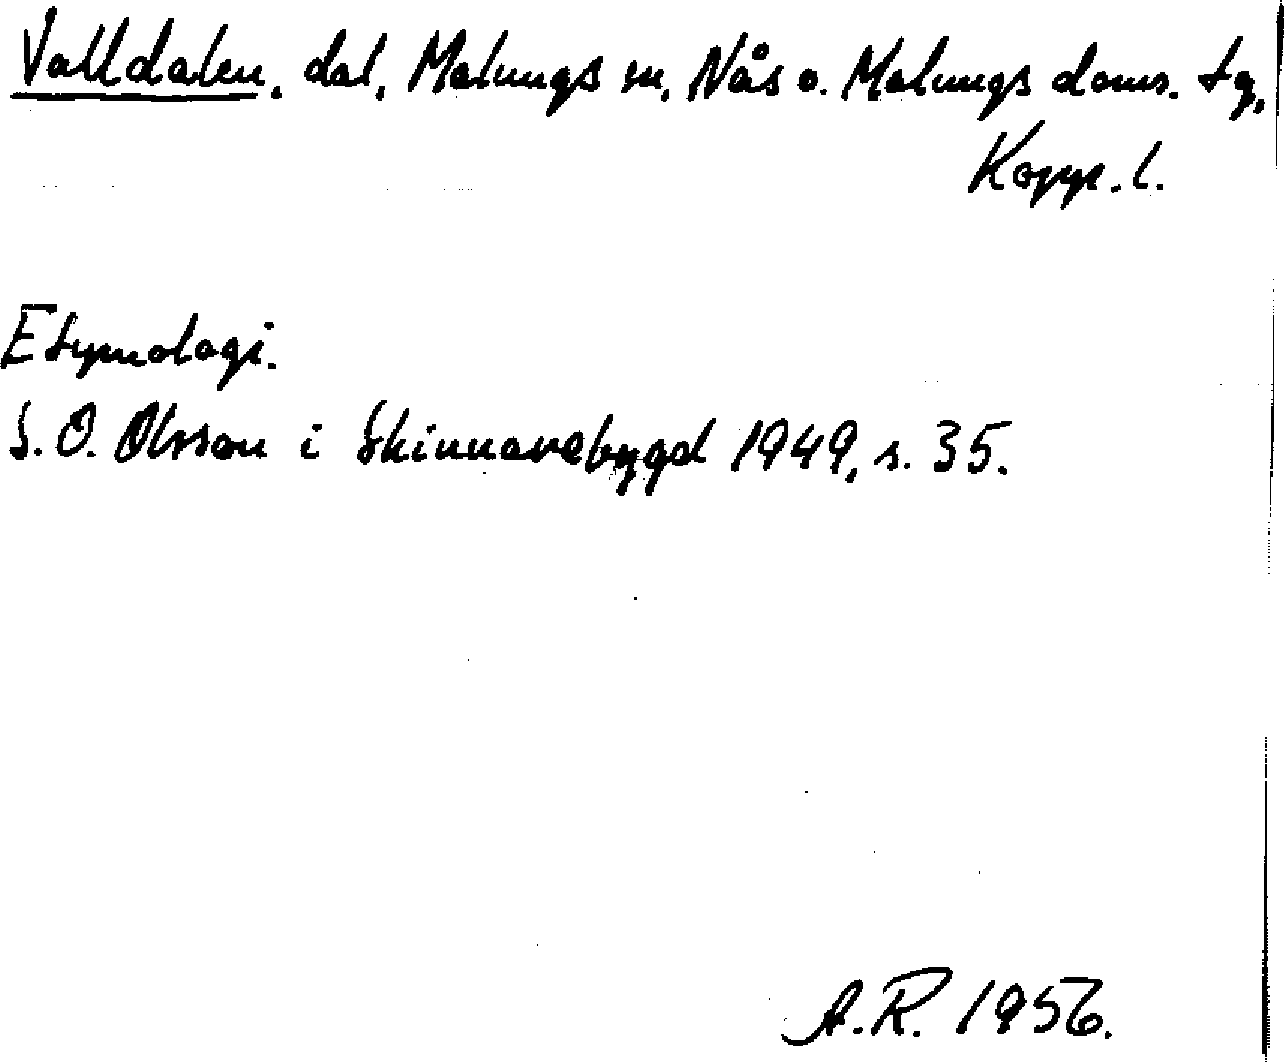 Valldalen, dal, Malungs sn, Nås o. Malungs doms. tg,
Kopp. l.
Etymologi.
S. O. Olsson i Skinnarebygd 1949, s. 35.
A. R. 1956.